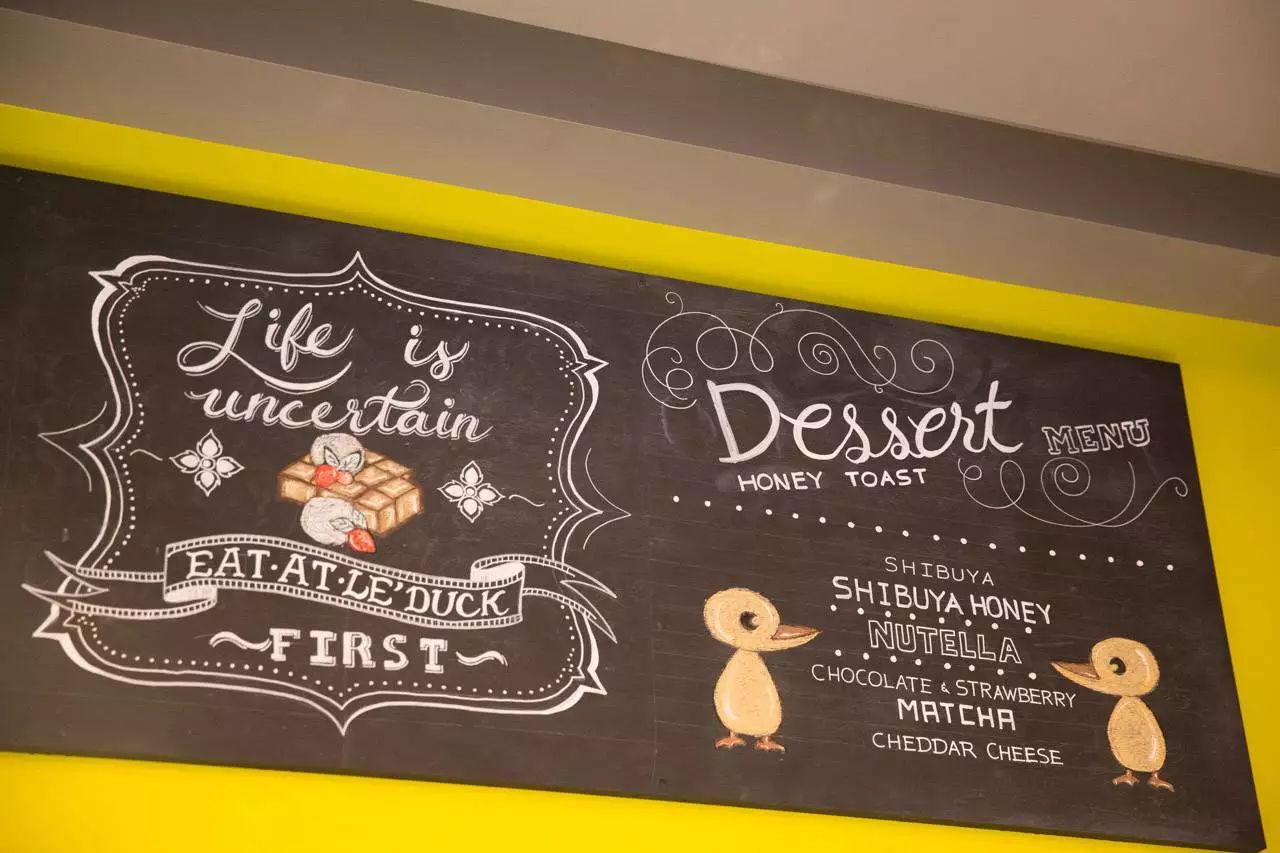 Life is
uncertain
EAT·AT·LE'DUCK
~FIRST~
Dessert MENU
HONEY TOAST
SHIBUYA
SHIBUYA HONEY
NUTELLA
CHOCOLATE & STRAWBERRY
MATCHA
CHEDDAR CHEESE